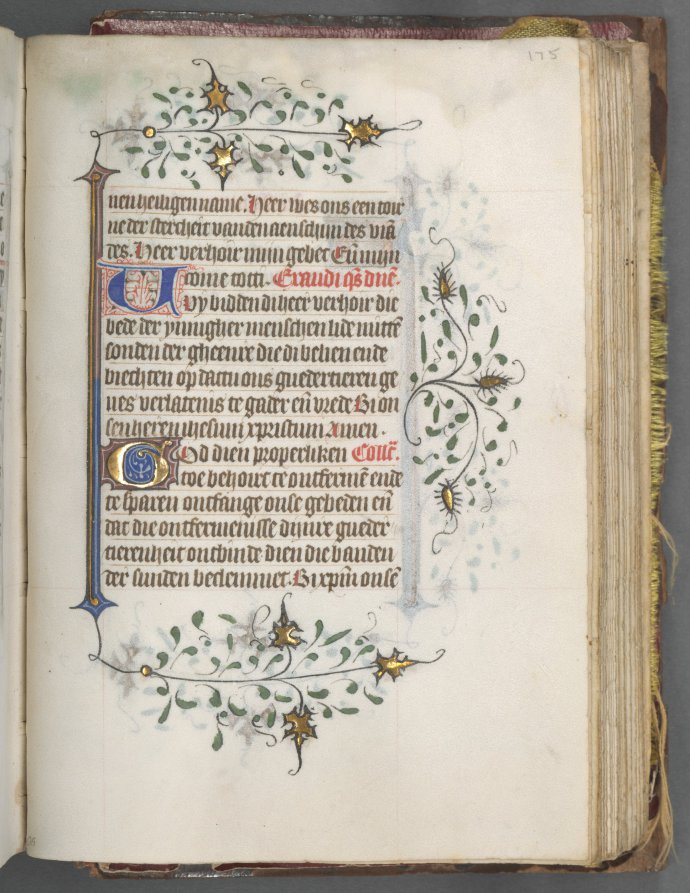 175
nen heiligen name. Heer wes ons een tor
ne der stercheit vanden aenschijn des viā
des. Heer verhoir mijn gebet Eñ mijn
come totti. Exaudi qs dnē.
Wy bidden di heer verhoir die
bede der ynnigher menschen lide mittē
sonden der gheenre die di belien ende
biechten op dattu ons guedertieren ge
ues verlatenis te gader eñ vrede Bi on
sen heren ihesum xpristum Amen.
God dien properliken Coll'.
toe behoirt te ontfermē ende
te sparen ontfange onse gebeden eñ
dat die ontfermenisse dijnre gueder
tierenheit ontbinde dien die banden
der sunden beclemmet. Bi xpm onsē